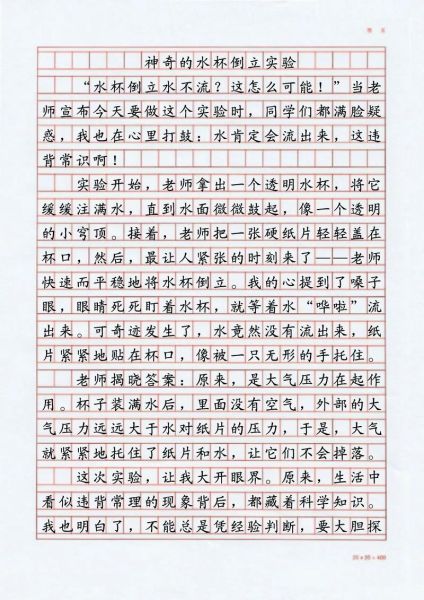 神奇的水杯倒立实验
“水杯倒立水不流？这怎么可能！”当老
师宣布今天要做这个实验时，同学们都满脸疑
惑，我也在心里打鼓：水肯定会流出来，这违
背常识啊！
实验开始，老师拿出一个透明水杯，将它
缓缓注满水，直到水面微微鼓起，像一个透明
的小穹顶。接着，老师把一张硬纸片轻轻盖在
杯口，然后，最让人紧张的时刻来了——老师
快速而平稳地将水杯倒立。我的心提到了嗓子
眼，眼睛死死盯着水杯，就等着水“哗啦”流
出来。可奇迹发生了，水竟然没有流出来，纸
片紧紧地贴在杯口，像被一只无形的手托住。
老师揭晓答案：原来，是大气压力在起作
用。杯子装满水后，里面没有空气，外部的大
气压力远远大于水对纸片的压力，于是，大气
就紧紧地托住了纸片和水，让它们不会掉落。
这次实验，让我大开眼界。原来，生活中
看似违背常理的现象背后，都藏着科学知识。
我也明白了，不能总是凭经验判断，要大胆探